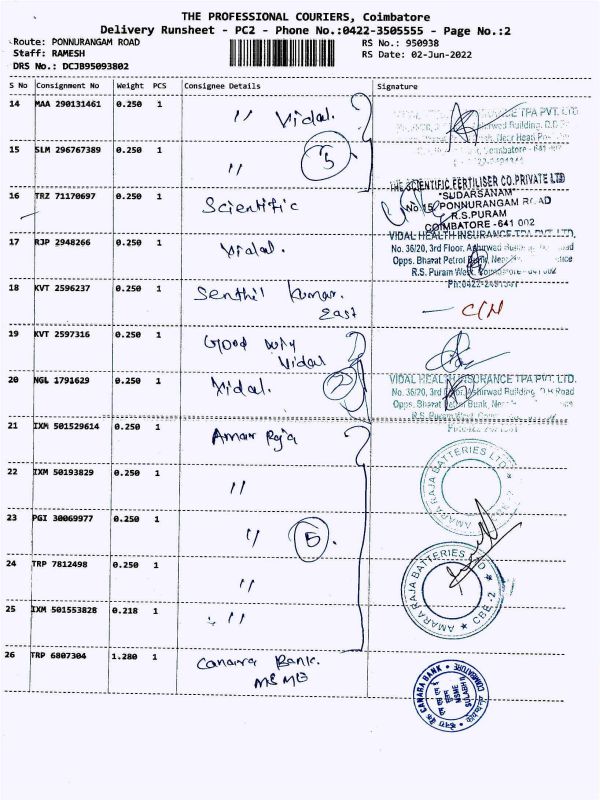 THE PROFESSIONAL COURIERS, Coimbatore
Delivery Runsheet - PC2 - Phone No.:0422-3505555 - Page No.:2
Route: PONNURANGAM ROAD RS No.: 950938
Staff: RAMESH RS Date: 02-Jun-2022
DRS No.: DCJB95093802
S No Consignment No Weight PCS Consignee Details Signature
14 MAA 290131461 0.250 1 " Vidal.
15 SLM 296767389 0.250 1 " 5
16 TRZ 71170697 0.250 1 Scientific
THE SCIENTIFIC FERTILISER CO.PRIVATE LTD
"SUDARSANAM"
No 15, PONNURANGAM ROAD
R.S.PURAM
COIMBATORE -641 002
17 RJP 2948266 0.250 1 Vidal.
VIDAL HEALTH INSURANCE TPA PVT. LTD.
No. 36/20, 3rd Floor, Ashirwad
Opps. Bharat Petrol Bunk,
R.S. Puram West, Coimbatore - 641 002
18 KVT 2596237 0.250 1 Senthil Kumar.
East
19 KVT 2597316 0.250 1 Good
Vidal
20 NGL 1791629 0.250 1 Vidal. 2
VIDAL HEALTH INSURANCE TPA PVT. LTD.
No. 36/20, 3rd Floor, Ashirwad Building, D.B Road
Opps. Bharat Petrol Bunk,
21 IXM 501529614 0.250 1 Amar Raja
22 IXM 50193829 0.250 1 "
23 PGI 30069977 0.250 1 " 5
24 TRP 7812498 0.250 1 "
25 IXM 501553828 0.218 1 "
AMARA RAJA BATTERIES LTD
CBE-2
AMARA RAJA BATTERIES LTD
CBE-2
26 TRP 6807304 1.280 1 Canara Bank.
MSME
CANARA BANK
COIMBATORE
MSME
SULABH